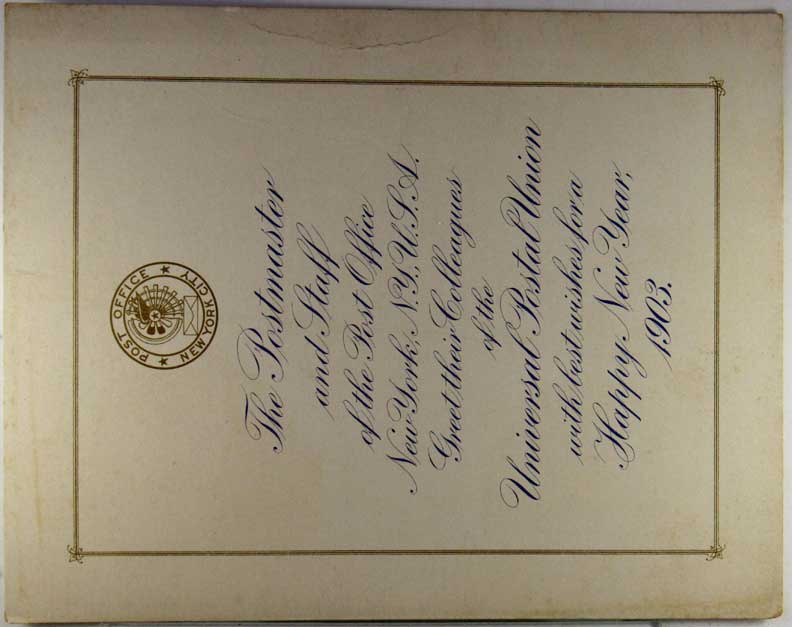 POST OFFICE
NEW YORK CITY
The Postmaster
and Staff
of the Post Office
New York, N.Y., U.S.A.
Greet their Colleagues
of the
Universal Postal Union
with best wishes for a
Happy New Year,
1903.